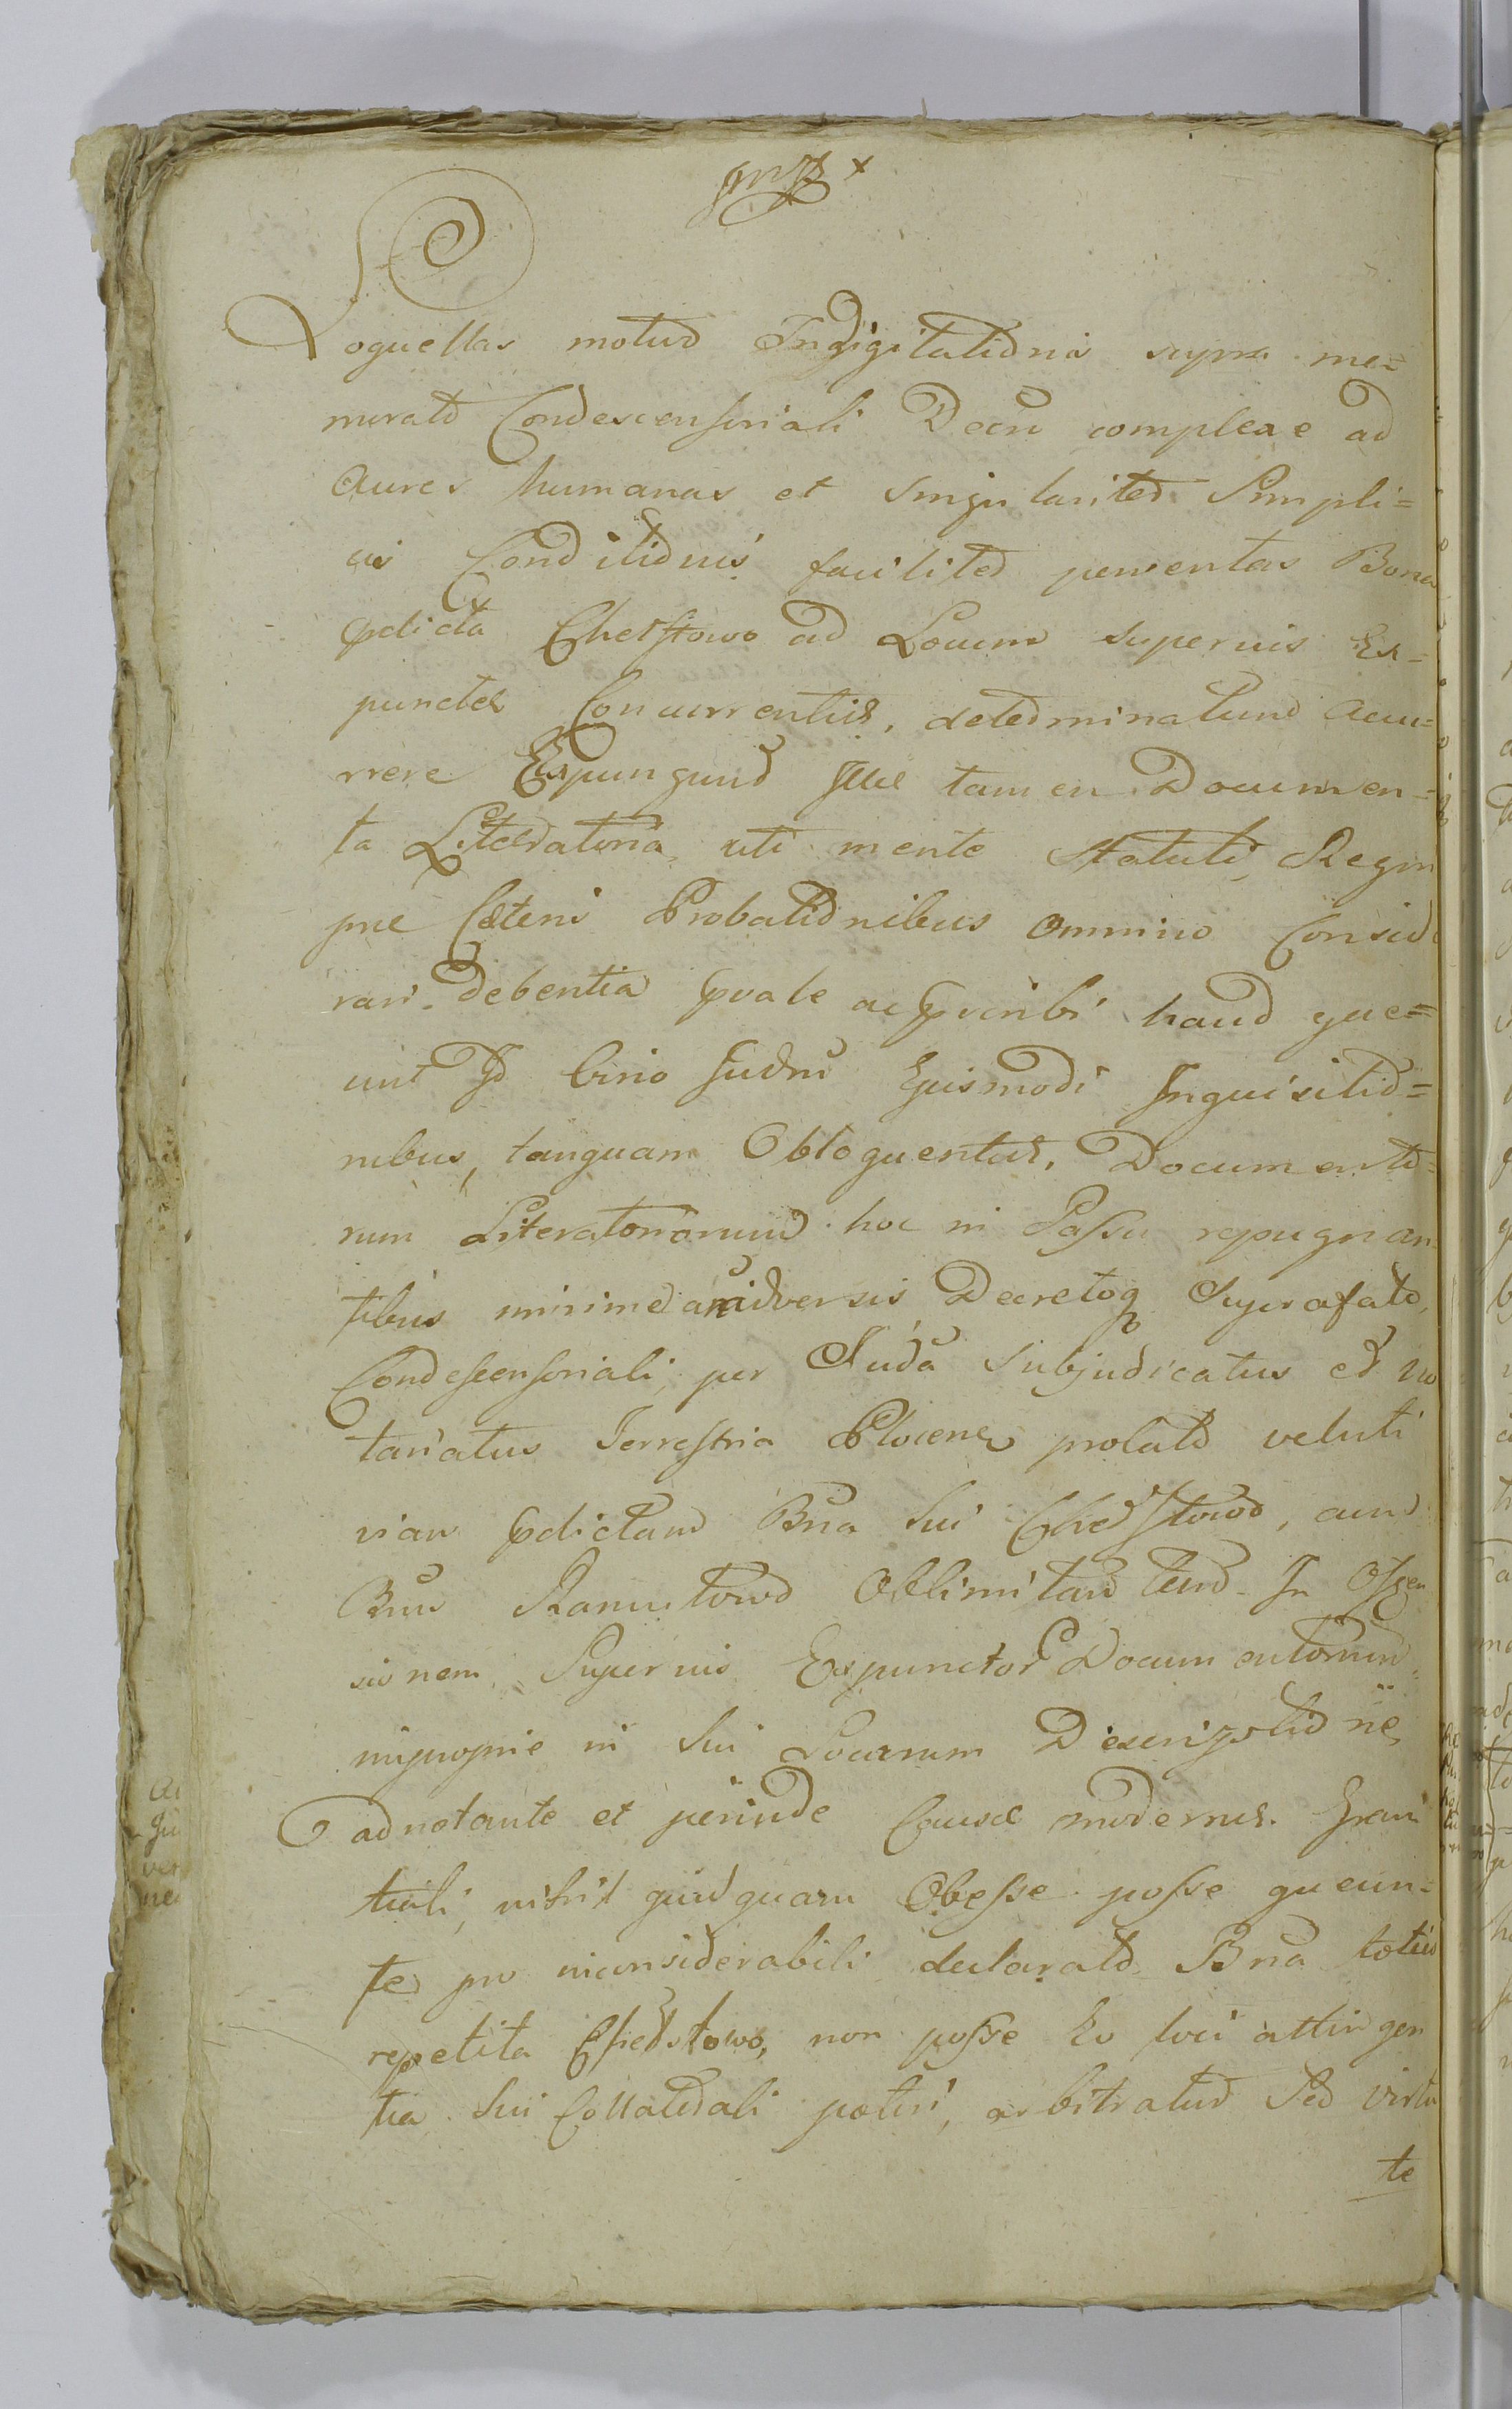 Loquellas motus Indigitationis supra me=
morato Condescensoriali Decto compleae ad
Aures humanas et singulariter Simpli=
cis Conditionis faciliter perventas Bona
pdicta Chełstowo ad Locum supervis Ex=
punctae Concurrentiae, determinatum accu=
rrere Expungunt Illae tamen Documen=
ta Literatoria, uti mente Statuti Regni
prae Caeteris Probationibus omnino Consid
rari debentia pvale ac pscribi haud que=
unt Id circo Judm Ejusmodi Inquisitio=
nibus, tanquam Obloquentur, Documento=
rum Literatoriorum hoc in Passu repugnan
tibus minime adversis Decretoq Suprafato,
Condescensoriali, per Juda Subjudicatus et No
tariatus Terrestria Plocen prolato veluti
viam pdictam Bna sui Chełstowo, cum
Bnis Ramutowo Oblimitan tem In Ossen
sionem Supervis Expunctor Documentorum
improprie in sui Locarum Descriptione
adnotante et perinde Causae modernae Grani
tiali, nihil quidquam Obesse posse queun=
te pro inconsiderabili declarato Bna toties
repetita Chełstowo, non posse Eo loci attingen
tia sui Collaterali potiri, arbitratur Sed virtu
te